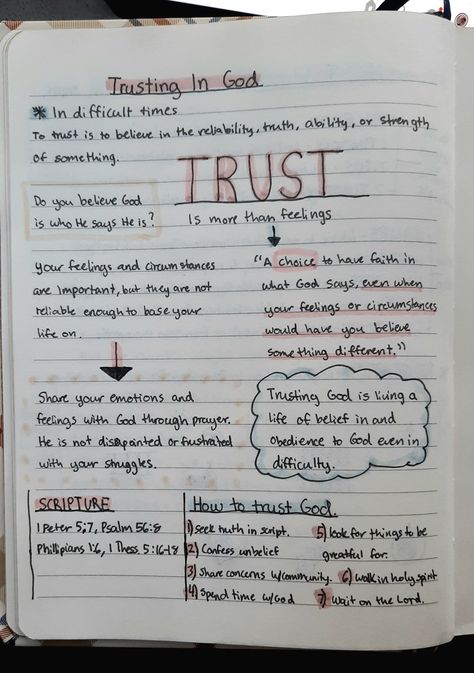 Trusting In God
* In difficult times
To trust is to believe in the reliability, truth, ability, or strength
of something.
TRUST
Is more than feelings
Do you believe God
is who He says He is?
"A choice to have faith in
what God says, even when
your feelings or circumstances
would have you believe
something different."
Your feelings and circumstances
are important, but they are not
reliable enough to base your
life on.
Share your emotions and
feelings with God through prayer.
He is not disapointed or frustrated
with your struggles.
Trusting God is living a
life of belief in and
obedience to God even in
difficulty.
SCRIPTURE
1 Peter 5;7, Psalm 56:8
Phillipians 1:6, 1 Thess. 5:16-18
How to trust God.
1) seek truth in script.
2) Confess unbelief
3) Share concerns w/community.
4) Spend time w/God
5) look for things to be
greatful for.
6) walk in holy spirit
7) Wait on the Lord.